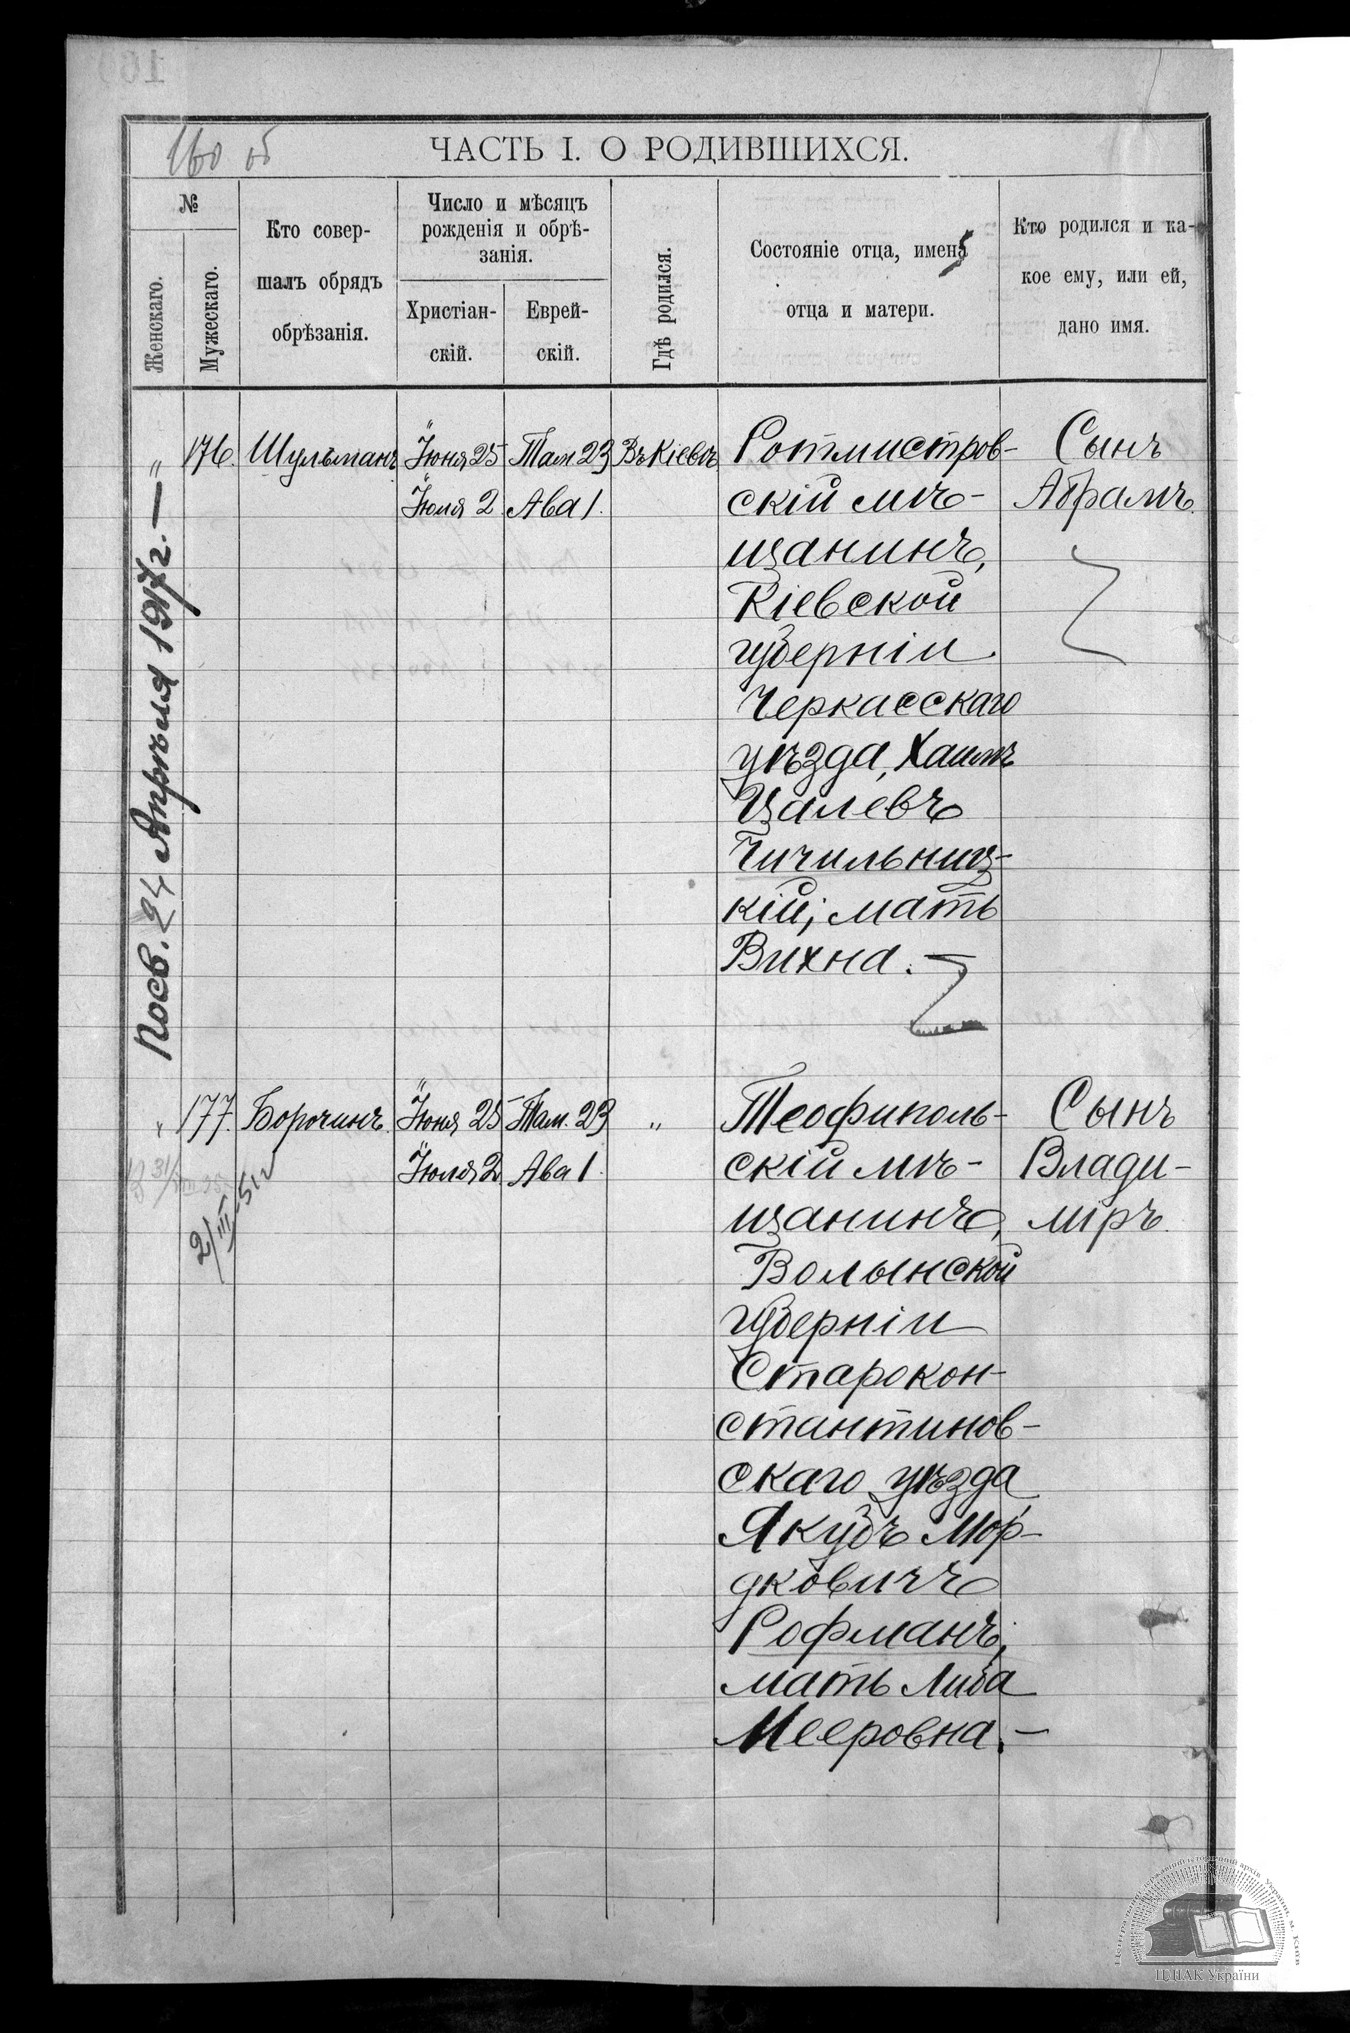 160 об
ЧАСТЬ I. О РОДИВШИХСЯ.
№
Женскаго.
Мужескаго.
Кто совер-
шалъ обрядъ
обрѣзанія.
Число и мѣсяцъ
рожденія и обрѣ-
занія.
Христіан-
скій.
Еврей-
скій.
Гдѣ родился.
Состояніе отца, имена
отца и матери.
Кто родился и ка-
кое ему, или ей,
дано имя.
" 176. Шульманъ Іюня 25 Там 23 Въ Кіевѣ
Іюля 2 Ава 1.
Ротмистров-
скій мѣ-
щанинъ,
Кіевской
губерніи
Черкасскаго
уѣзда, Хаимъ
Цалевъ
Чичильниц-
кій; мать
Вихна. —
Сынъ
Абрамъ.
Посв. 24 Апрѣля 1917 г. —
" 177. Борочинъ Іюня 25 Там. 23 "
Іюля 2 Ава 1.
2/III 51 г
Теофиполь-
скій мѣ-
щанинъ,
Волынской
губерніи
Старокон-
стантинов-
скаго уѣзда
Якубъ Мор-
дковичъ
Рофманъ,
мать Либа
Мееровна. —
Сынъ
Влади-
міръ.
ЦДІАК України